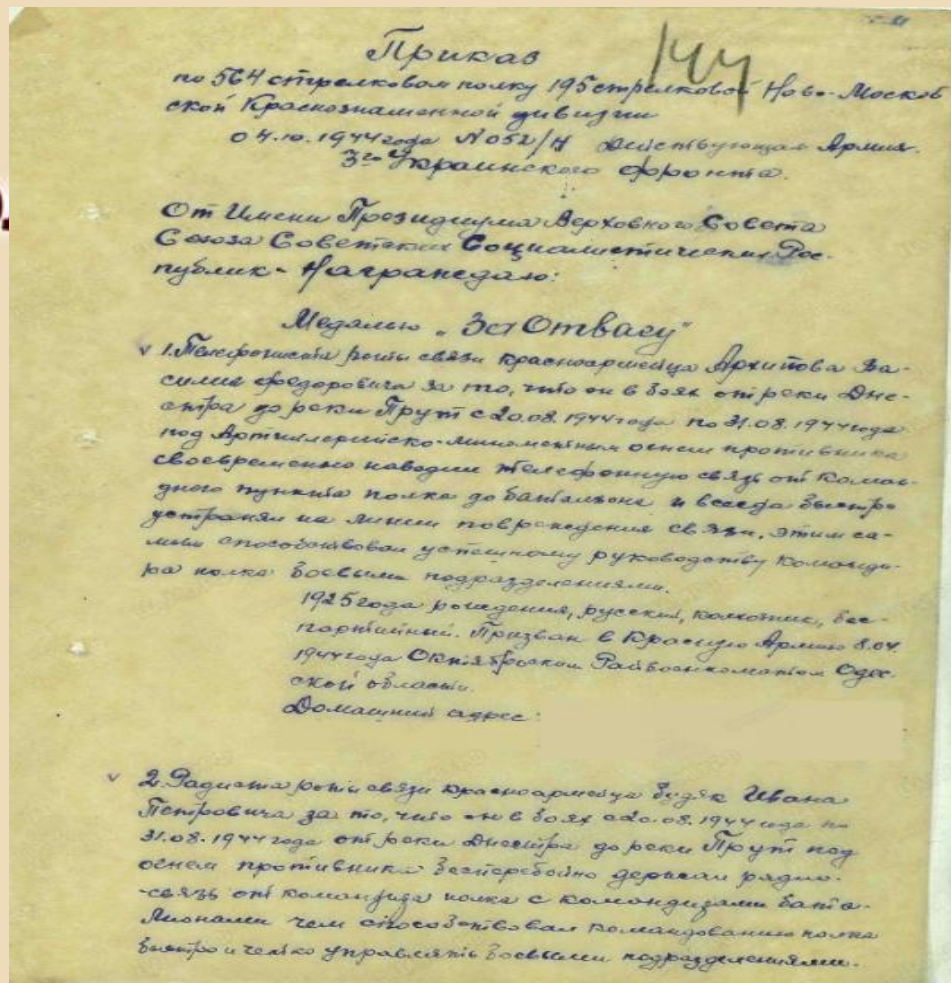 144
Приказ
по 564 стрелковом полку 195 стрелковой Ново-Москов
ской Краснознаменной дивизии
04.10.1944 года №052/Н Действующая Армия.
3го Украинского фронта.
От Имени Президиума Верховного Совета
Союза Советских Социалистических Рес-
публик - Награждаю:
Медалью „За Отвагу"
v 1. Телефониста роты связи красноармейца Архипова Ва-
силия Федоровича за то, что он в боях от реки Дне-
стра до реки Прут с 20.08.1944 года по 31.08.1944 года
под Артиллерийско-минометным огнем противника
своевременно наводил телефонную связь от Коман-
дного пункта полка до батальона и всегда быстро
устранял на линии повреждения связи, этим са-
мым способствовал успешному руководству команди-
ра полка боевыми подразделениями.
1925 года рождения, русский, колхозник, бес-
партийный. Призван в Красную Армию 8.04.
1944 года Октябрьским Райвоенкоматом Одес-
ской области.
Домашний адрес:
v 2. Радиста роты связи красноармейца Будяк Ивана
Петровича за то, что он в боях с 20.08.1944 года по
31.08.1944 года от реки Днестра до реки Прут под
огнем противника бесперебойно держал радио-
-связь от командира полка с командирами бата-
лионами чем способствовал командованию полка
быстро и четко управлять боевыми подразделениями.